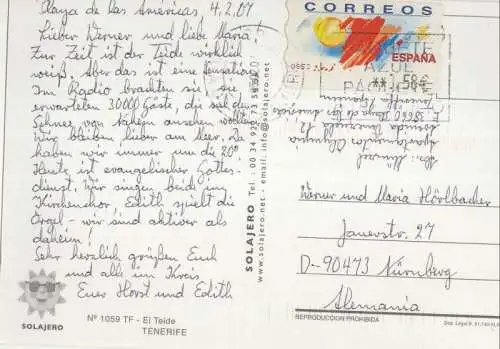 Playa de las Americas 4.2.01
Lieber Werner und liebe Maria!
Zur Zeit ist der Teide wirklich
weiß. Aber das ist eine Sensation.
Im Radio brachten sie, sie
erwarteten 30000 Gäste, die sich den
Schnee von Nahem ansehen wollten.
Wir bleiben lieber am Meer. Da
haben wir immer um die 20°
Heute ist evangelischer Gottes-
dienst. Wir singen beide im
Kirchenchor. Edith spielt die
Orgel – wir sind aktiver als
daheim!
Sehr herzlich grüßen Euch
und all im Kreis
Euer Horst und Edith
SOLAJERO
Nº 1059 TF - El Teide
TENERIFE
SOLAJERO Tel: 00 34 922 73
www.solajero.net - email: info@solajero.net
CORREOS
ESPAÑA
**58€
AZUL
Werner und Maria Hörlbacher
Janerstr. 27
D-90473 Nürnberg
Alemania
REPRODUCCION PROHIBIDA